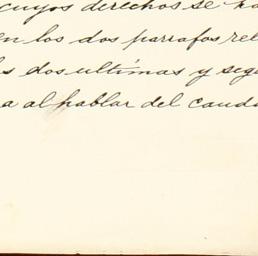 cuyos derechos se ha
en los dos parrafos rel
s dos ultimas y segu
a al hablar del caud